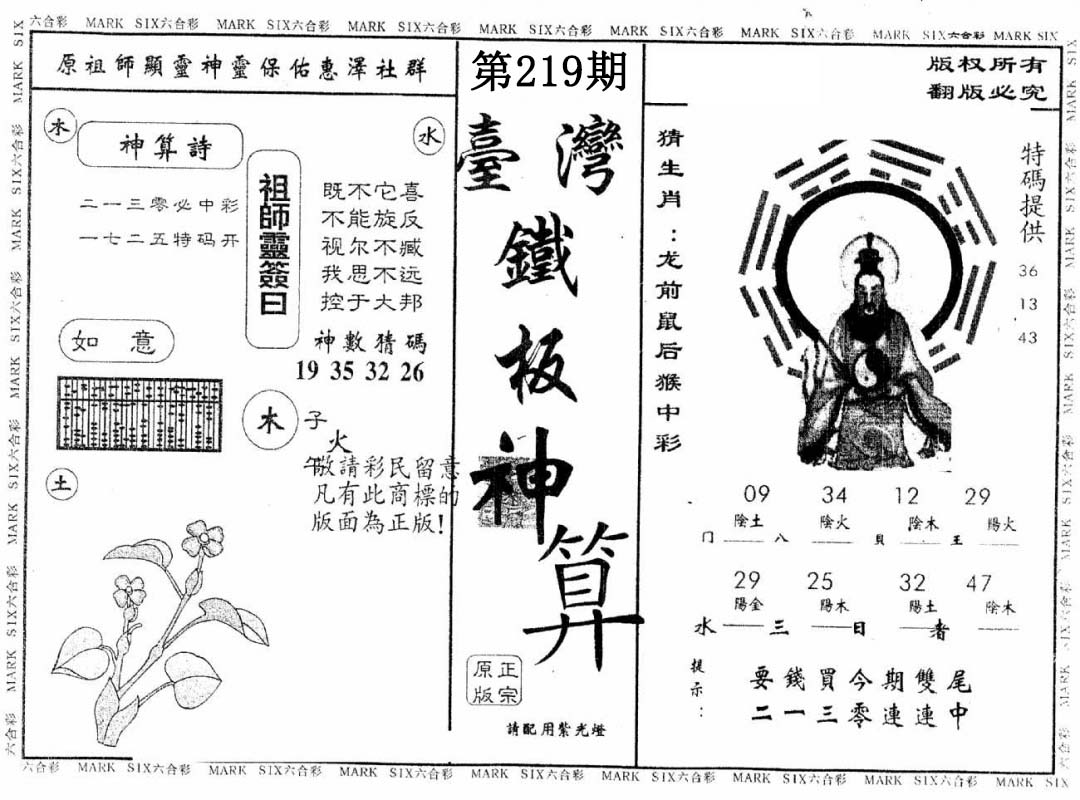 六合彩 MARK SIX六合彩 MARK SIX六合彩 MARK SIX六合彩 MARK SIX六合彩 MARK SIX六合彩 MARK SIX六合彩 MARK SIX六合彩 MARK SIX
原祖師顯靈神靈保佑惠澤社群
木
神算詩
水
二一三零必中彩
一七二五特码开
祖師靈簽曰
既不它喜
不能旋反
视尔不臧
我思不远
控于大邦
神數猜碼
19 35 32 26
如意
木
子
火
午
敬請彩民留意
凡有此商標的
版面為正版!
土
第219期
臺灣
鐵
板
神
算
正宗
原版
請配用紫光燈
版权所有
翻版必究
猜生肖：龙前鼠后猴中彩
特碼提供
36
13
43
09 34 12 29
陰土 陰火 陰木 陽火
门 八 貝 王
29 25 32 47
陽金 陽木 陽土 陰木
水 三 日 者
提示：
要錢買今期雙尾
二一三零連連中
六合彩 MARK SIX六合彩 MARK SIX六合彩 MARK SIX六合彩 MARK SIX六合彩 MARK SIX六合彩 MARK SIX六合彩 MARK SIX六合彩 MARK SIX